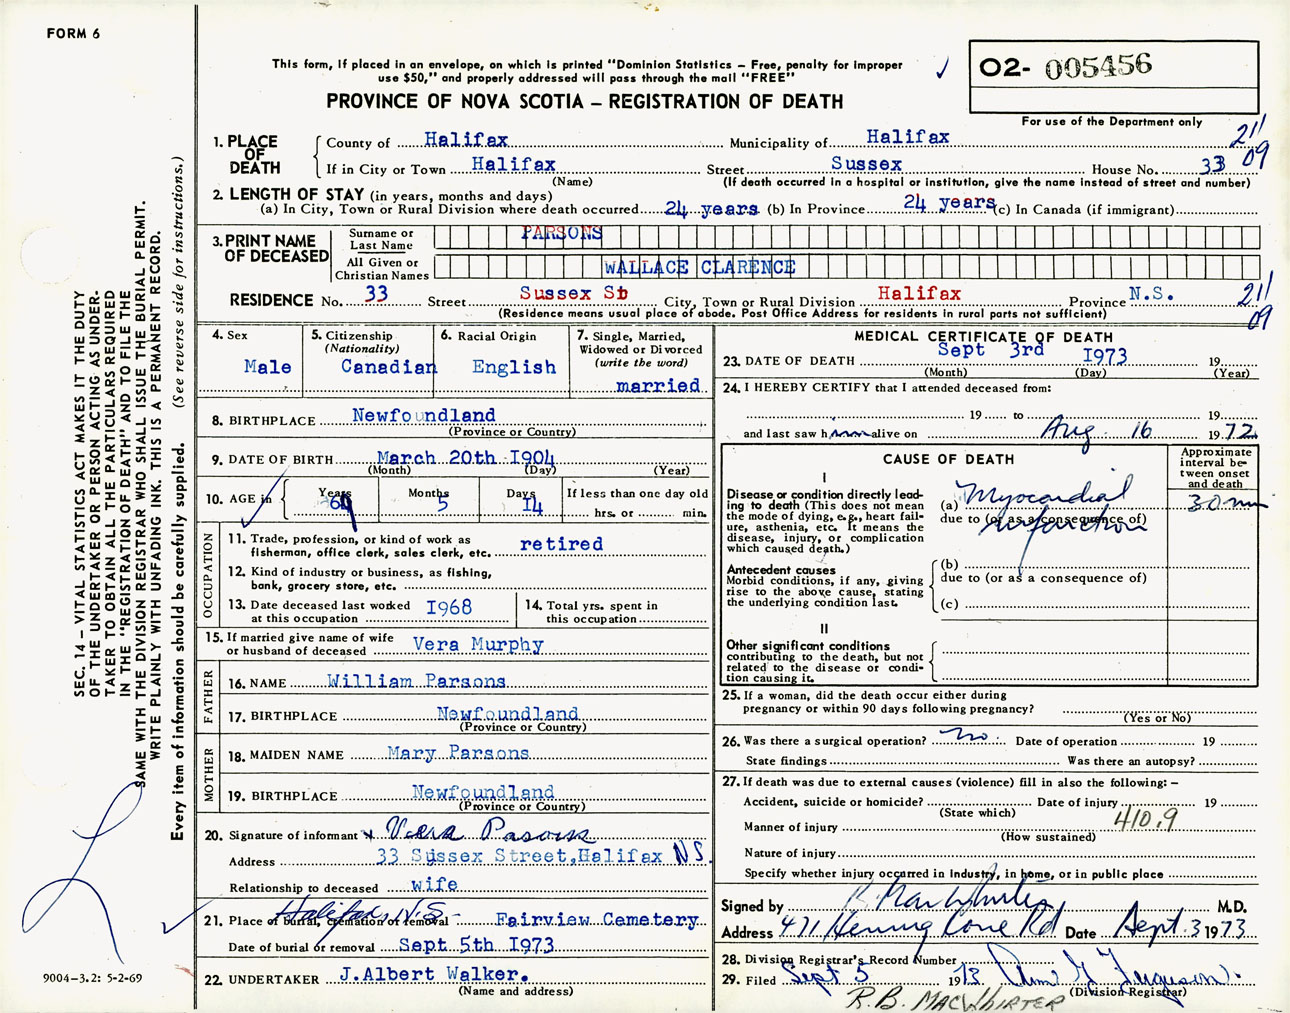 FORM 6
This form, if placed in an envelope, on which is printed "Dominion Statistics – Free, penalty for improper
use $50," and properly addressed will pass through the mail "FREE"
PROVINCE OF NOVA SCOTIA – REGISTRATION OF DEATH
02- 005456
For use of the Department only
SEC. 14 – VITAL STATISTICS ACT MAKES IT THE DUTY
OF THE UNDERTAKER OR PERSON ACTING AS UNDER-
TAKER TO OBTAIN ALL THE PARTICULARS REQUIRED
IN THE "REGISTRATION OF DEATH" AND TO FILE THE
SAME WITH THE DIVISION REGISTRAR WHO SHALL ISSUE THE BURIAL PERMIT.
WRITE PLAINLY WITH UNFADING INK. THIS IS A PERMANENT RECORD.
Every item of information should be carefully supplied. (See reverse side for instructions.)
1. PLACE OF DEATH
County of Halifax Municipality of Halifax 211
If in City or Town Halifax Street Sussex House No. 33 09
(Name) (If death occurred in a hospital or institution, give the name instead of street and number)
2. LENGTH OF STAY (in years, months and days)
(a) In City, Town or Rural Division where death occurred 24 years (b) In Province 24 years (c) In Canada (if immigrant)
3. PRINT NAME OF DECEASED
Surname or Last Name PARSONS
All Given or Christian Names WALLACE CLARENCE
RESIDENCE No. 33 Street Sussex St City, Town or Rural Division Halifax Province N.S. 211
(Residence means usual place of abode. Post Office Address for residents in rural parts not sufficient) 09
4. Sex
Male
5. Citizenship
(Nationality)
Canadian
6. Racial Origin
English
7. Single, Married,
Widowed or Divorced
(write the word)
married
8. BIRTHPLACE Newfoundland
(Province or Country)
9. DATE OF BIRTH March 20th 1904
(Month) (Day) (Year)
10. AGE in Years 69 Months 5 Days 14 If less than one day old
hrs. or min.
OCCUPATION
11. Trade, profession, or kind of work as
fisherman, office clerk, sales clerk, etc. retired
12. Kind of industry or business, as fishing,
bank, grocery store, etc.
13. Date deceased last worked
at this occupation 1968
14. Total yrs. spent in
this occupation
15. If married give name of wife
or husband of deceased Vera Murphy
FATHER
16. NAME William Parsons
17. BIRTHPLACE Newfoundland
(Province or Country)
MOTHER
18. MAIDEN NAME Mary Parsons
19. BIRTHPLACE Newfoundland
(Province or Country)
20. Signature of informant x Vera Parsons
Address 33 Sussex Street, Halifax NS.
Relationship to deceased wife
21. Place of burial, cremation or removal Halifax, N.S. Fairview Cemetery
Date of burial or removal Sept 5th 1973
22. UNDERTAKER J.Albert Walker.
(Name and address)
9004-3.2: 5-2-69
MEDICAL CERTIFICATE OF DEATH
23. DATE OF DEATH Sept 3rd 1973 19
(Month) (Day) (Year)
24. I HEREBY CERTIFY that I attended deceased from:
19 to 19
and last saw him alive on Aug. 16 1972
CAUSE OF DEATH
Approximate
interval be-
tween onset
and death
I
Disease or condition directly lead-
ing to death (This does not mean
the mode of dying, e.g., heart fail-
ure, asthenia, etc. It means the
disease, injury, or complication
which caused death.)
(a) Myocardial 30 min
due to (or as a consequence of)
infarction
Antecedent causes
Morbid conditions, if any, giving
rise to the above cause, stating
the underlying condition last.
(b)
due to (or as a consequence of)
(c)
II
Other significant conditions
contributing to the death, but not
related to the disease or condi-
tion causing it.
25. If a woman, did the death occur either during
pregnancy or within 90 days following pregnancy?
(Yes or No)
26. Was there a surgical operation? No Date of operation 19
State findings Was there an autopsy?
27. If death was due to external causes (violence) fill in also the following: –
Accident, suicide or homicide? Date of injury 19
(State which) 410.9
Manner of injury
(How sustained)
Nature of injury
Specify whether injury occurred in industry, in home, or in public place
Signed by R. MacWhirter M.D.
Address 471 Herring Cove Rd Date Sept. 3 1973
28. Division Registrar's Record Number
29. Filed Sept 5 1973 G Ferguson
(Division Registrar)
R.B. MACWHIRTER